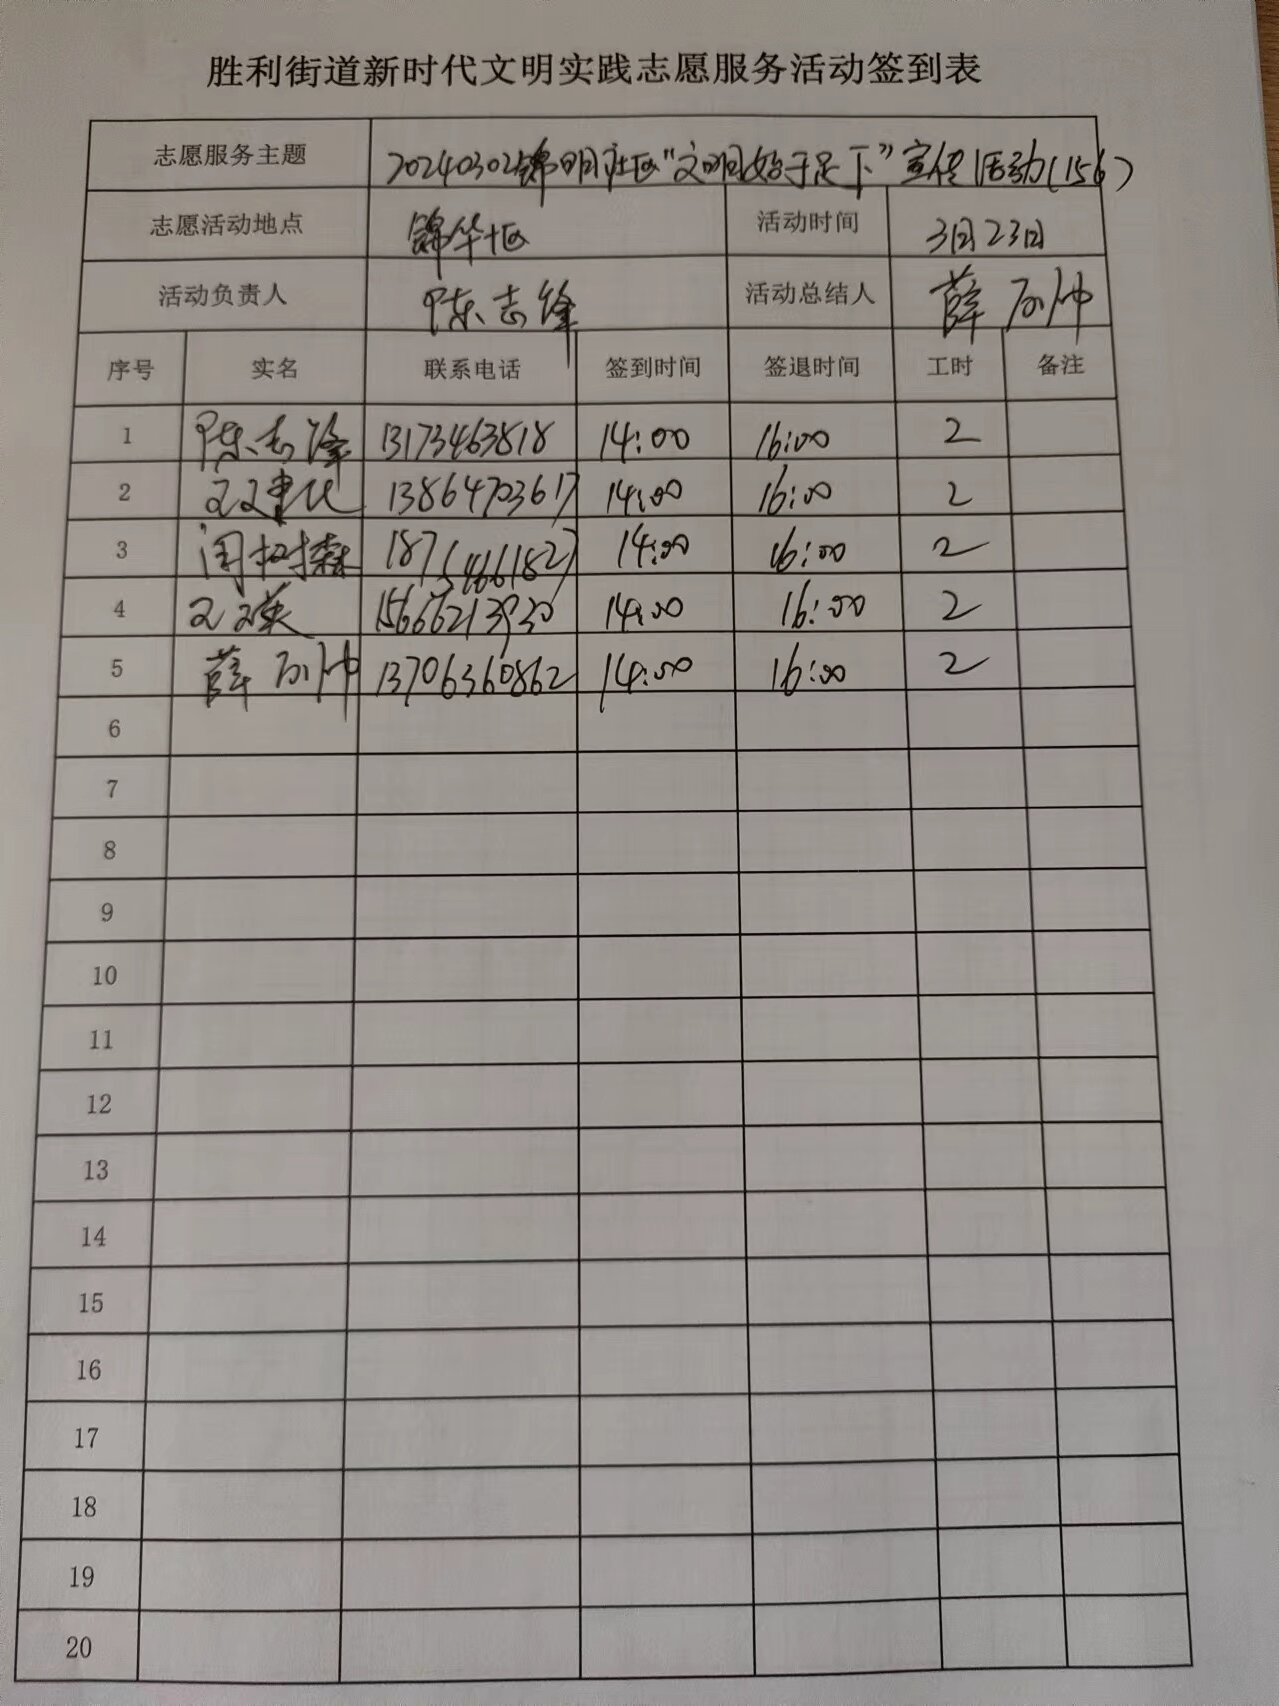 胜利街道新时代文明实践志愿服务活动签到表
志愿服务主题 20240302锦明社区“文明始于足下”宣传活动(156)
志愿活动地点 锦华社区 活动时间 3月23日
活动负责人 陈志锋 活动总结人 薛
序号 实名 联系电话 签到时间 签退时间 工时 备注
1 陈志锋 13173463818 14:00 16:00 2
2 13864703617 14:00 16:00 2
3 闫树森 18754661827 14:00 16:00 2
4 15666213930 14:00 16:00 2
5 薛 13706360862 14:00 16:00 2
6
7
8
9
10
11
12
13
14
15
16
17
18
19
20